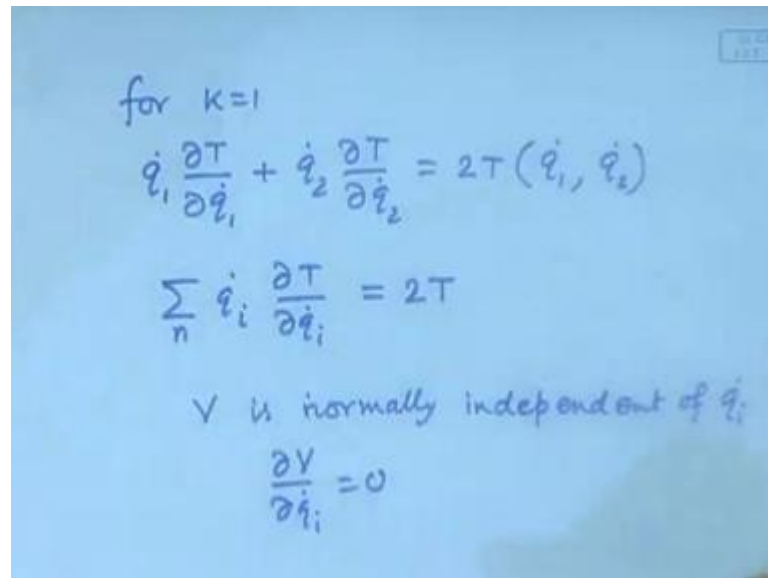 for K=1
q̇₁ ∂T/∂q̇₁ + q̇₂ ∂T/∂q̇₂ = 2T(q̇₁, q̇₂)
∑ₙ q̇ᵢ ∂T/∂q̇ᵢ = 2T
V is normally independent of q̇ᵢ
∂V/∂q̇ᵢ = 0